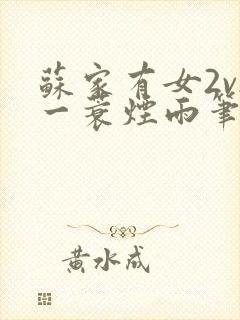 蘇家有女2v
一蓑煙雨筆
黃水成